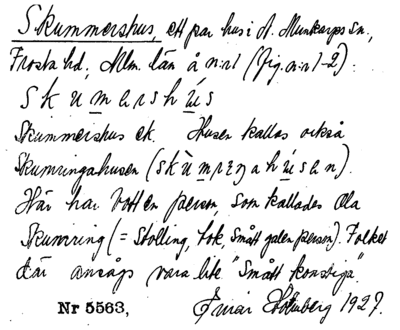 Skummershus, ett par hus i N. Munkarps sn.,
Frosta hd, Mlm. län å n:r 1 (fig. a:n 1-2):
s k u m a r s h ú s
Skummershus ek. Husen kallas också
Skumringahusen (s k ù m r ı ŋ a h ú s e n).
Här har bott en person som kallades Ola
Skumring (= Stolling, tok, smått galen person). Folket
där ansågs vara lite "smått konstiga".
Nr 5563, Einar Holmberg 1927.